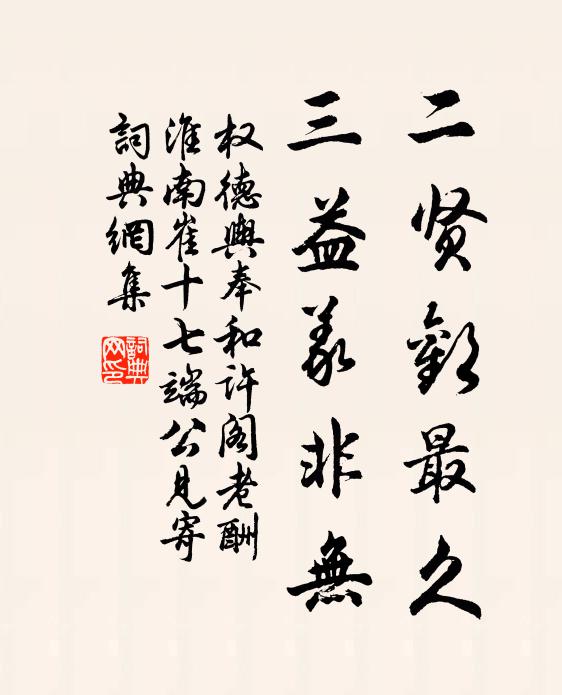 二贤歡最久
三益義非無
权德輿奉和许阁老酬
淮南崔十七端公見寄
詞典網集
詞典网印